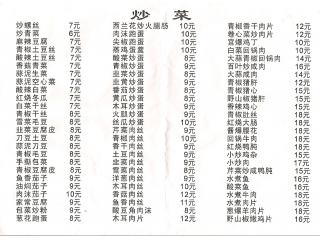 炒 菜
炒螺丝 7元
炒青菜 6元
麻辣豆腐 7元
青椒土豆丝 7元
酸辣土豆丝 7元
香菇青菜 7元
蒜泥生菜 7元
蒜泥空心菜 7元
酸辣白菜 7元
红烧冬瓜 7元
白菜干丝 7元
青椒干丝 8元
雪菜毛豆 8元
韭黄豆腐皮 8元
刀豆土豆 8元
蒜泥刀豆 8元
青椒毛豆 8元
手撕包菜 8元
青椒豆腐皮 8元
鱼香茄子 9元
油焖茄子 9元
肉沫茄子 10元
家常豆腐 9元
包菜炒粉 9元
葱花跑蛋 8元
西兰花炒火腿肠 10元
肉沫跑蛋 10元
尖椒跑蛋 10元
蒸鸡蛋羹 10元
韭菜炒蛋 10元
青椒炒蛋 10元
韭黄炒蛋 10元
番茄炒蛋 10元
黄瓜炒蛋 10元
木耳炒蛋 10元
丝瓜炒蛋 10元
苦瓜炒蛋 10元
芹菜肉丝 8元
青椒肉丝 8元
茭白肉丝 8元
土豆肉丝 8元
韭黄肉丝 9元
洋葱肉丝 9元
木耳肉丝 10元
榨菜肉丝 10元
鱼香肉丝 11元
酸豆角肉沫 8元
木耳肉片 12元
青椒香干肉片 12元
卷心菜炒肉片 12元
宫爆鸡丁 10元
白菜回锅肉 10元
大蒜青椒回锅肉 14元
百叶炒咸肉 16元
大蒜咸肉 14元
青椒猪肝 15元
青椒猪心 15元
野山椒猪肝 15元
香辣鸡心 15元
青椒牛肚 18元
红烧大肠 18元
酱爆腰花 18元
回锅牛肉 18元
红烧鸭肫 15元
小炒鸡杂 15元
小炒肉 15元
芹菜炒咸鸭肫 15元
水煮鱼 16元
酸菜鱼 16元
水煮牛肉 18元
水煮肉片 16元
葱爆羊肉片 18元
野山椒嫩鸡片 16元